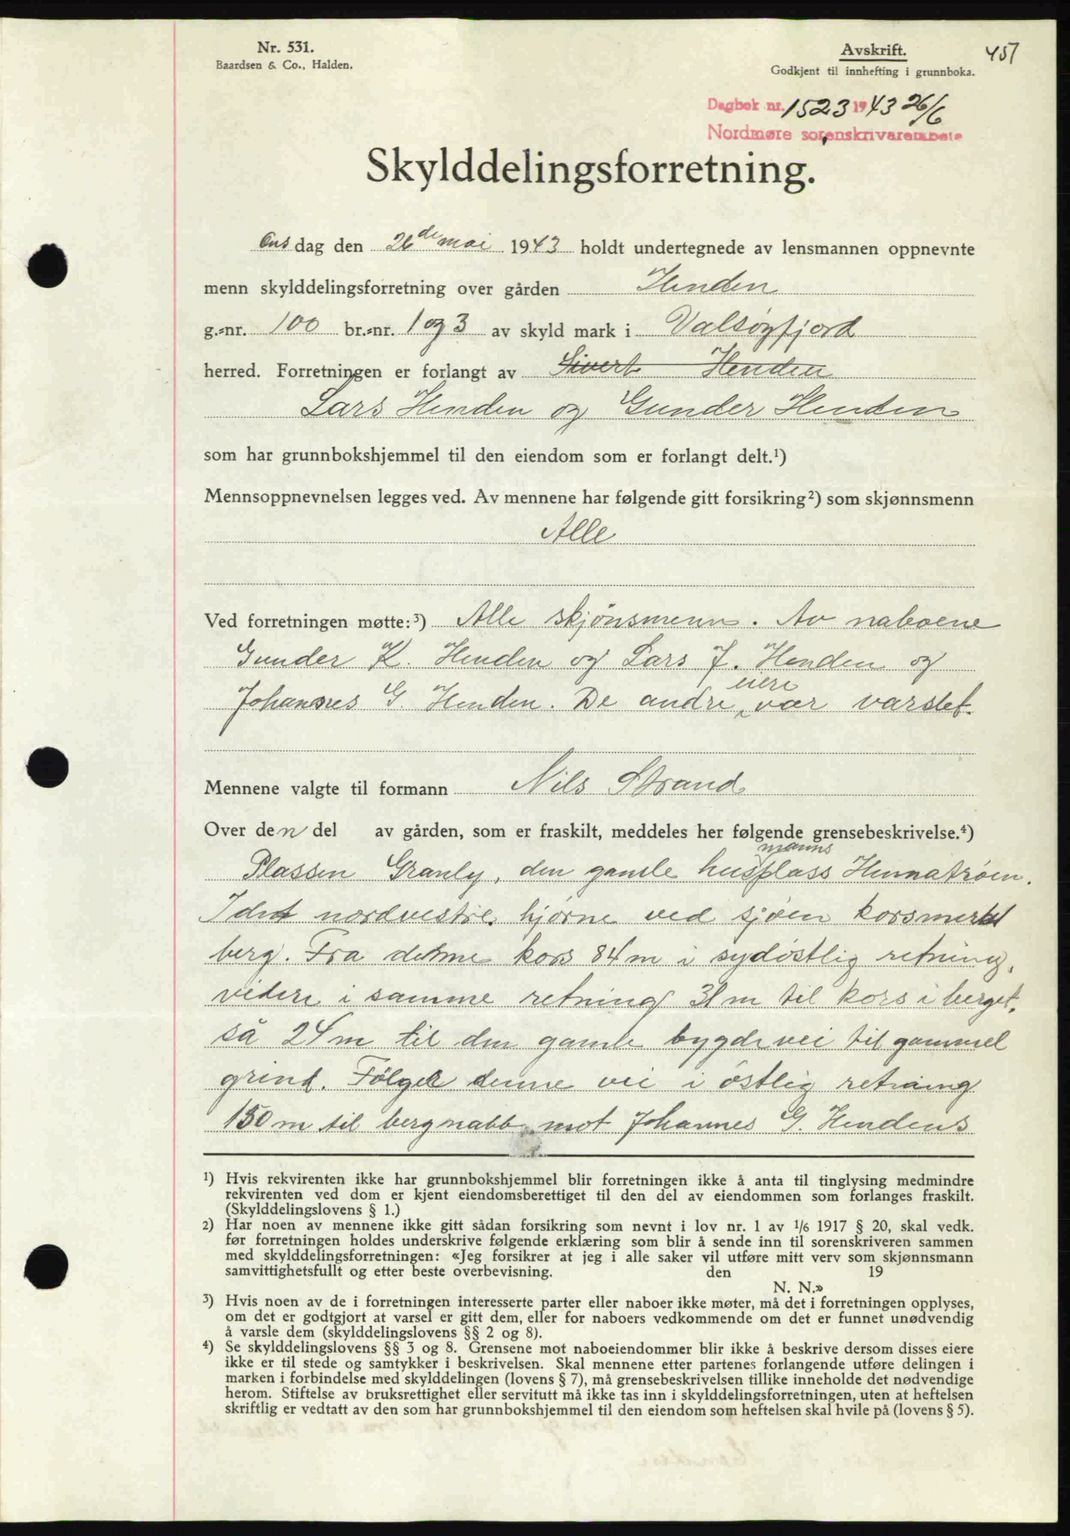 Nr. 531.
Baardsen & Co., Halden.
Avskrift.
Godkjent til innhefting i grunnboka.
457
Dagbok nr. 1523 1943 26/6
Nordmøre sorenskriverembete
Skylddelingsforretning.
Onsdag den 26de mai 1943 holdt undertegnede av lensmannen oppnevnte
menn skylddelingsforretning over gården Henden
g.-nr. 100 br.-nr. 1 og 3 av skyld mark i Valsøyfjord
herred. Forretningen er forlangt av Sivert Henden
Lars Henden og Gunder Henden
som har grunnbokshjemmel til den eiendom som er forlangt delt.¹)
Mennsoppnevnelsen legges ved. Av mennene har følgende gitt forsikring²) som skjønnsmenn
Alle
Ved forretningen møtte:³) Alle skjønsmenn. Av naboene
Gunder K. Henden og Lars J. Henden og
Johannes G. Henden. De andre eiere var varslet.
Mennene valgte til formann Nils Strand
Over den del av gården, som er fraskilt, meddeles her følgende grensebeskrivelse.⁴)
Plassen Granly, den gamle husmannsplass Hennatrøen.
I det nordvestre hjørne ved sjøen korsmerket
berg. Fra denne kors 84 m i sydøstlig retning,
videre i samme retning 31 m til kors i berget,
så 24 m til den gamle bygdevei til gammel
grind. Følger denne vei i østlig retning
150 m til bergnabb mot Johannes G. Hendens
¹) Hvis rekvirenten ikke har grunnbokshjemmel blir forretningen ikke å anta til tinglysing medmindre
rekvirenten ved dom er kjent eiendomsberettiget til den del av eiendommen som forlanges fraskilt.
(Skylddelingslovens § 1.)
²) Har noen av mennene ikke gitt sådan forsikring som nevnt i lov nr. 1 av 1/6 1917 § 20, skal vedk.
før forretningen holdes underskrive følgende erklæring som blir å sende inn til sorenskriveren sammen
med skylddelingsforretningen: «Jeg forsikrer at jeg i alle saker vil utføre mitt verv som skjønnsmann
samvittighetsfullt og etter beste overbevisning. den 19
N. N.»
³) Hvis noen av de i forretningen interesserte parter eller naboer ikke møter, må det i forretningen opplyses,
om det er godtgjort at varsel er gitt dem, eller for naboers vedkommende om det er funnet unødvendig
å varsle dem (skylddelingslovens §§ 2 og 8).
⁴) Se skylddelingslovens §§ 3 og 8. Grensene mot naboeiendommer blir ikke å beskrive dersom disses eiere
ikke er til stede og samtykker i beskrivelsen. Skal mennene etter partenes forlangende utføre delingen i
marken i forbindelse med skylddelingen (lovens § 7), må grensebeskrivelsen tillike inneholde det nødvendige
herom. Stiftelse av bruksrettighet eller servitutt må ikke tas inn i skylddelingsforretningen, uten at heftelsen
skriftlig er vedtatt av den som har grunnbokshjemmel til den eiendom som heftelsen skal hvile på (lovens § 5).